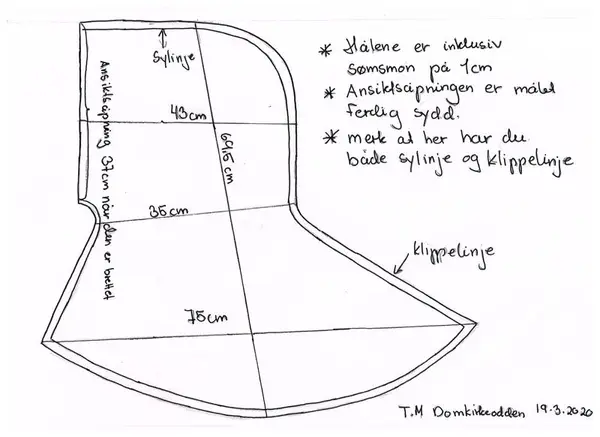 Sylinje
* Hålene er inklusiv
sømsmon på 1cm
* Ansiktsåpningen er målet
ferdig sydd.
* merk at her har du
både sylinje og klippelinje
Ansiktsåpning 37cm når den er brettet
43cm
69,5cm
35cm
klippelinje
75cm
T.M Domkirkeodden 19.3.2020